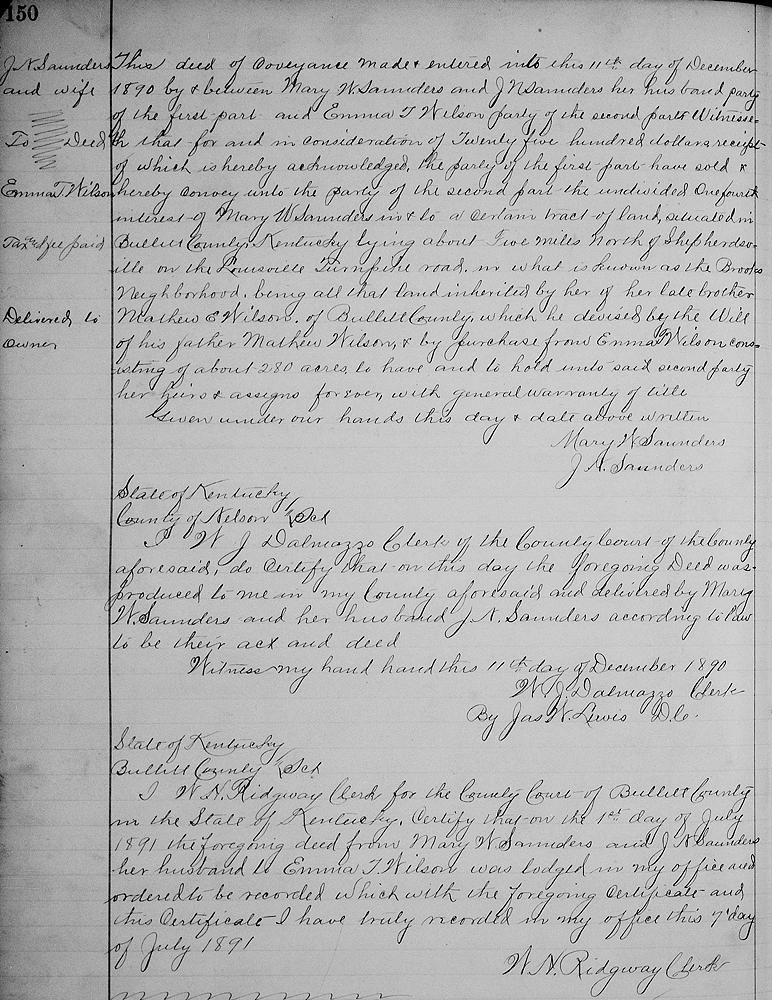 150
J. N. Saunders
and wife
To Deed
Emma T Wilson
Tax & fee paid
Delivered to
owner
This deed of Coveyance made & entered into this 11th day of December
1890 by & between Mary W. Saunders and J N Saunders her husband party
of the first part and Emma T Wilson party of the second part Witnesse=
th that for and in consideration of Twenty five hundred dollars receipt
of which is hereby acknowledged, the party of the first part have sold &
hereby convey unto the party of the second part the undivided One fourth
interest of Mary W Saunders in & to a certain tract of land, situated in
Bullitt County, Kentucky lying about Five miles North of Shepherdsv-
ille on the Louisville Turnpike road, in what is known as the Brooks
Neighborhood, being all that land inherited by her of her late brother
Mathew E Wilson, of Bullitt County, which he devised by the Will
of his father Mathew Wilson, & by purchase from Emma T Wilson cons=
isting of about 280 acres, to have and to hold unto said second party
her heirs & assigns for ever, with general warranty of title
Given under our hands this day & date above written
Mary W Saunders
J. N. Saunders
State of Kentucky
County of Nelson Sct
I W J Dalmazzo Clerk of the County Court of the County
aforesaid, do Certify that on this day the foregoing Deed was
produced to me in my County aforesaid and delivered by Mary
W. Saunders and her husband J. N. Saunders according to law
to be their act and deed
Witness my hand hand this 11th day of December 1890
W. J. Dalmazzo Clerk
By Jas W. Lewis D.C.
State of Kentucky
Bullitt County Sct
I W. N. Ridgway Clerk for the County Court of Bullitt County
in the State of Kentucky, Certify that on the 1st day of July
1891 the foregoing deed from Mary W Saunders and J N Saunders
her husband to Emma T. Wilson was lodged in my office and
ordered to be recorded which with the foregoing Certificate and
this Certificate I have truly recorded in my office this 7 day
of July 1891
W. N. Ridgway Clerk